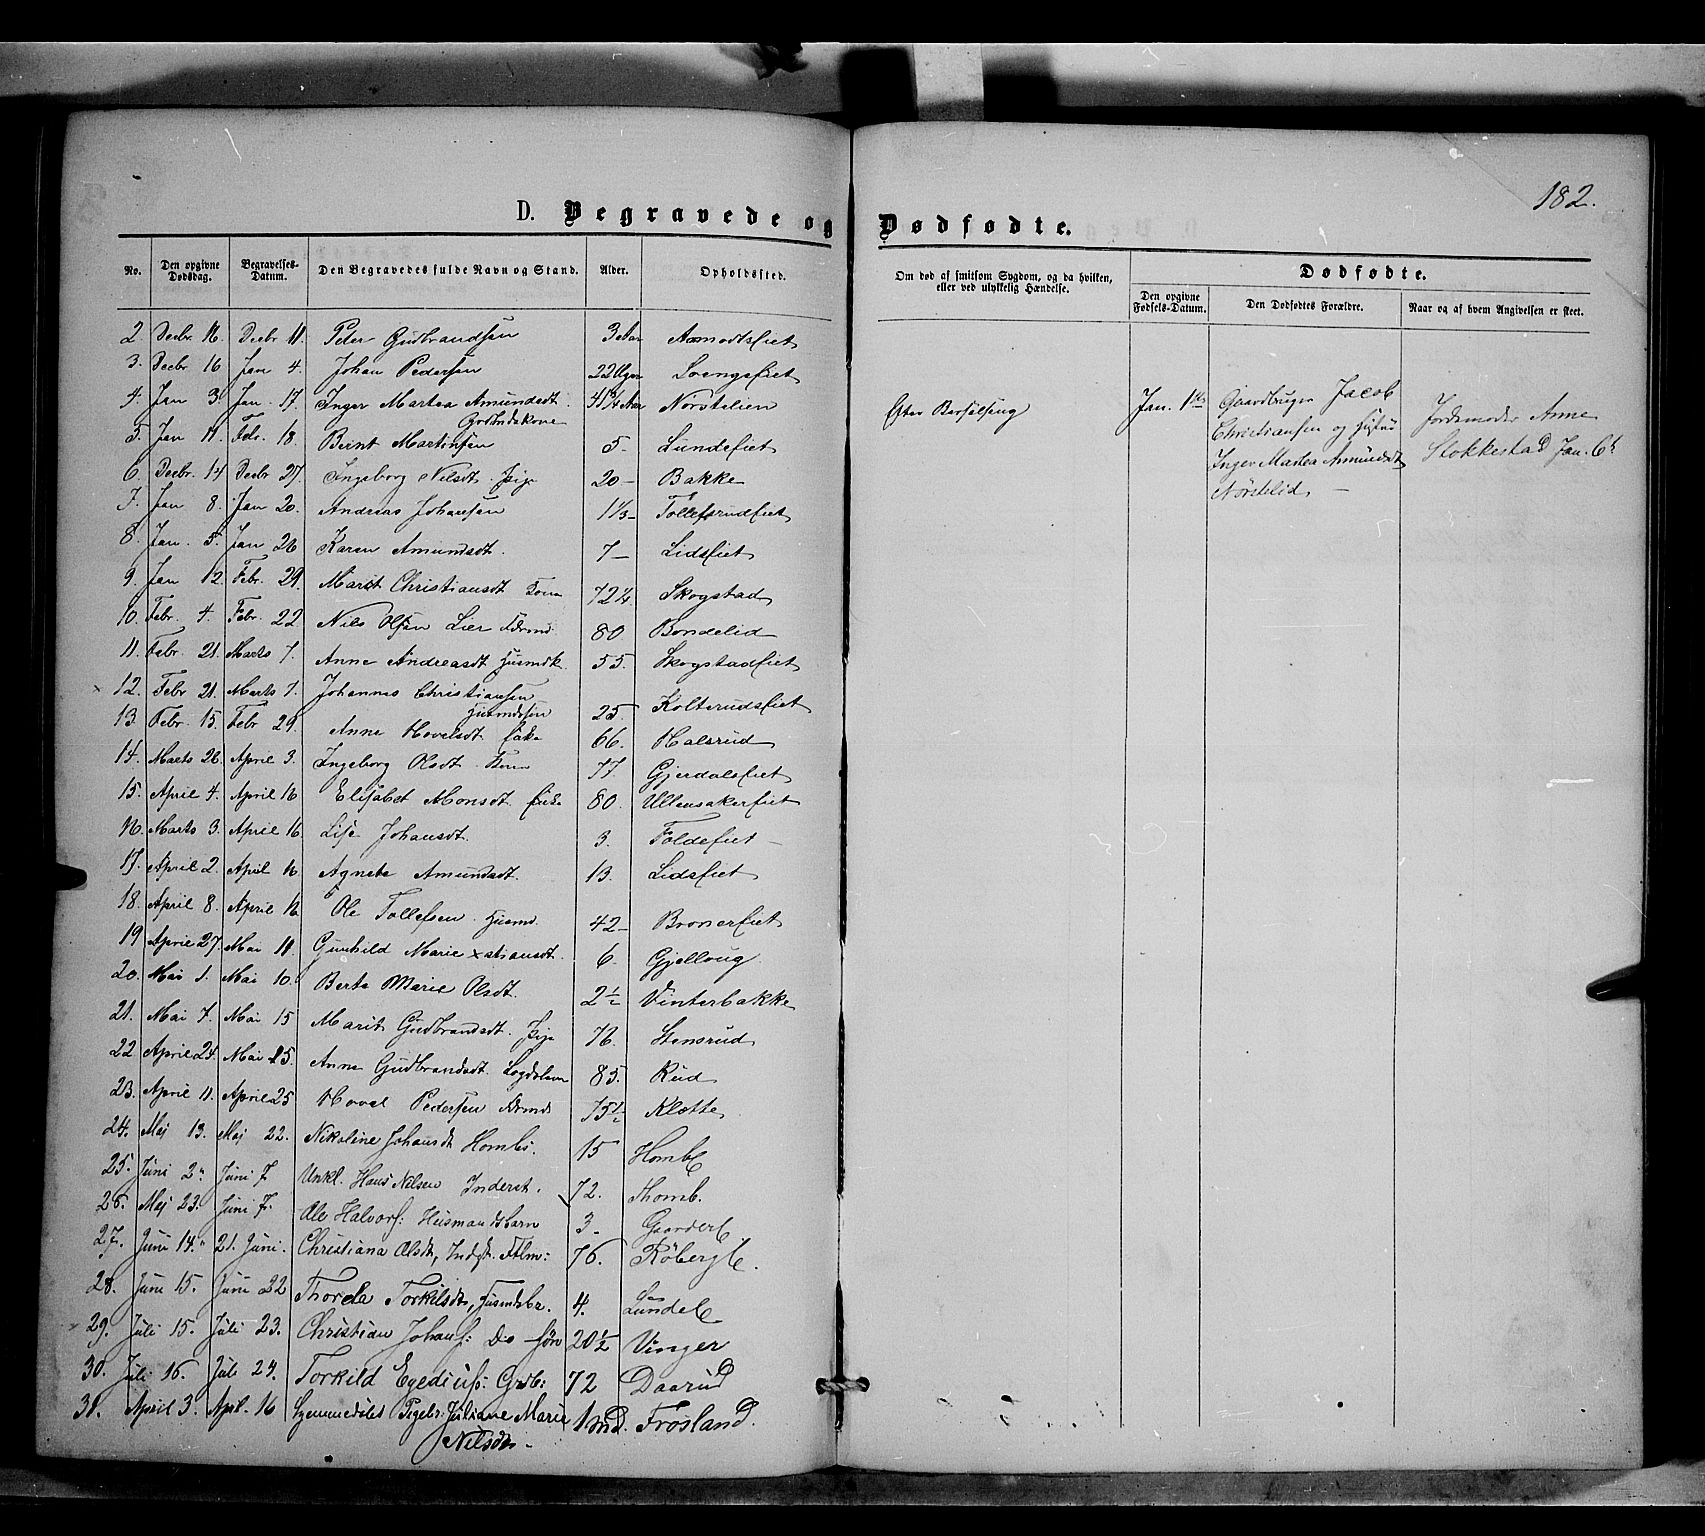 182.
D. Begravede og Dødfødte.
No. Den opgivne Dødsdag. Begravelses-Datum. Den Begravedes fulde Navn og Stand. Alder. Opholdssted. Om død af smitsom Sygdom, og da hvilken, eller ved ulykkelig Hændelse. Dødfødte.
Den opgivne Fødsels-Datum. Den Dødfødtes Forældre. Naar og af hvem Angivelsen er skeet.
2. Decbr. Decbr 11. Peter Gudbrandsen 3 Aar
3. Decbr 16 Jan 4. Johan Pedersen 22 Uger
4. Jan 3. Jan. 17. Inger Martea Amundsdt. 41 Aar Norstelien Efter Barselseng Jan. 1 Gaardbruger Jacob
Christiansen og Hustru
Inger Martea Amundsdt
Nørstelid
Jordemoder Anne
Stokkestad Jan. 6
5. Jan 11. Febr. 18. Bernt Martinsen 5 - Lundeeiet
6. Decbr. 14 Decbr 27. Ingeborg Nilsdt. Pige 20 - Bakke
7. Jan 8. Jan 20. Andreas Johansen 1 1/3 - Tollefsrudeiet
8. Jan. 5. Jan 26 Karen Amundsdt. 7 - Lidseiet
9. Jan 12. Febr. 29. Marit Christiansdt 72 Skogstad
10. Febr. 4. Febr. 22 Nils Olsen Lier 80 Bondelid
11. Febr. 21. Marts 7. Anne Andreasdt Husmdk. 55. Skogstadeiet
12. Febr 21. Marts 7. Johannes Christiansen
Husmdssøn 25. Kolterudseiet
13 Febr. 15. Febr 29. Anne Hovelsdt. Enke 66. Halsrud
14. Marts 26. April 3. Ingeborg Olsdt. 77 Gjerdalseiet
15. April 4. April 16 Elisabet Monsdt. Enke 80. Ullensakereiet
16. Marts 3. April 16 Lise Johansdt. 3. Foldeeiet -
17. April 2. April 16 Agnete Amundsdt. 13. Lidseiet
18. April 8. April 16 Ole Tollefsen. Husmd. 42 -
19 April 27. Mai 11. Gunhild Marie Xstiansdt. 6.
20. Mai 1. Mai 10. Berte Marie Olsdt. 2 1/2 Vinterbakke
21. Mai 7. Mai 15 Marit Gudbrandsdt. Pige 76. Stensrud
22 April 24. Mai 25. Anne Gudbrandsdt. 85. Rud
23. April 11. April 25 Hovel Pedersen 75 1/2 Klætte
24. Maj 13. Maj 22. Nikoline Johansdt Hombs. 15
25. Juni 2. Juni 7 Unkl. Hans Nilsen Inderst. 72. Thomb.
26. Maj 23. Juni 7. Ole Halvors: Husmandsbarn 3 - Gaarder
27. Juni 14. 21. Juni. Christiana Olsdt, 76. Røberg
28. Juni 15. Juni 22 Thorda Torkilsdt, Husmdsbr. 4. Lunde
29. Juli 15. Juli 23. Christian Johans: Do søn 20 1/2 Vinger
30. Juli 16. Juli 24. Torkild Egedius: Grdb: 72 Daarud
31. April 3. April. 16 Hjemmedøbt Pigebr: Juliane Marie
Nilsdt. 1 md. Frøsland.